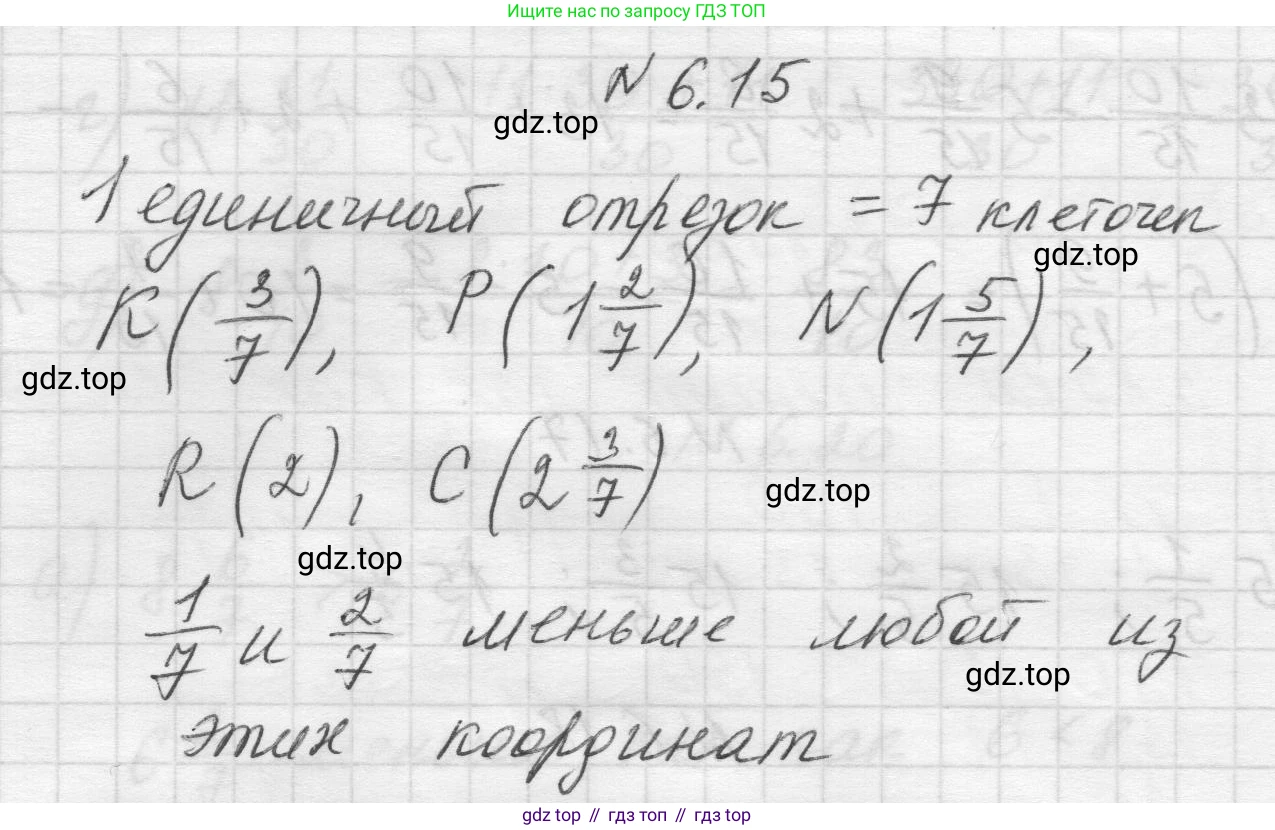 Ищите нас по запросу ГДЗ ТОП
N 6.15
gdz.top
1 единичный отрезок = 7 клеточек
gdz.top
K(3/7), P(1 2/7), N(1 5/7),
gdz.top
R(2), C(2 3/7)
gdz.top
gdz.top
1/7 и 2/7 меньше любой из
gdz.top
этих координат
gdz top // гдз топ // гдз top